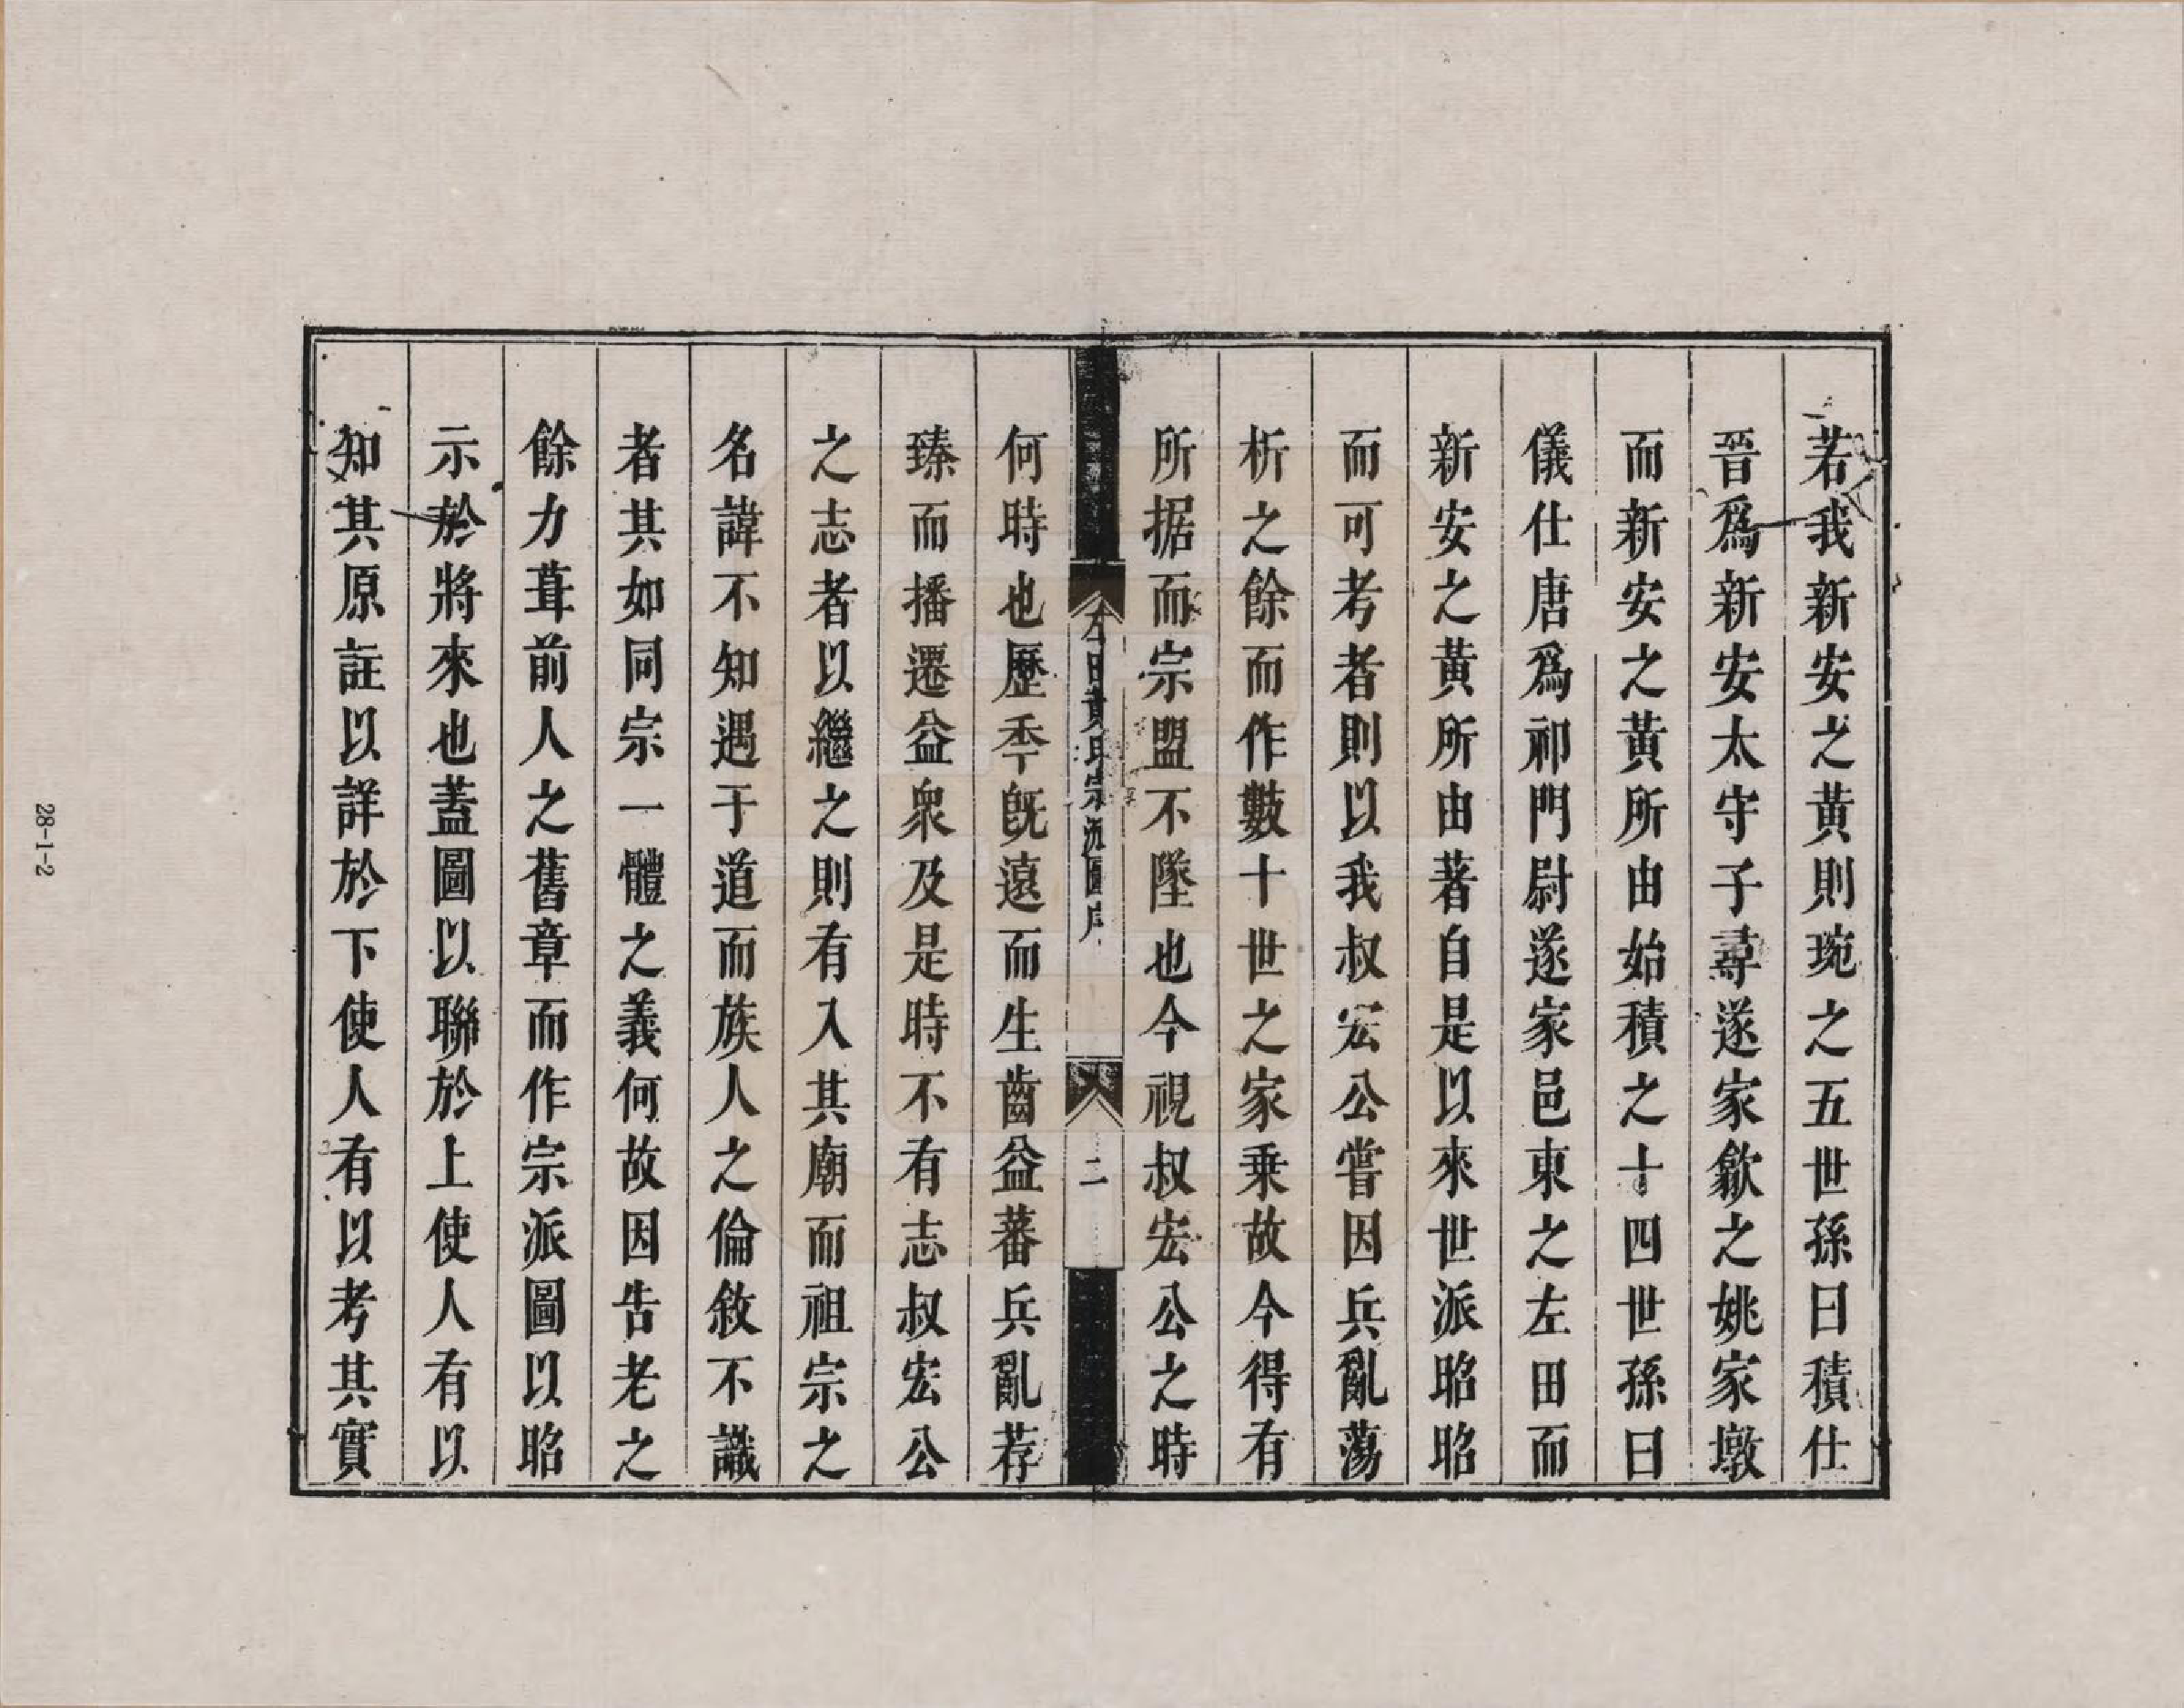 若我新安之黄則琬之五世孫曰積仕
晉爲新安太守子尋遂家歙之姚家墩
而新安之黄所由始積之十四世孫曰
儀仕唐爲祁門尉遂家邑東之左田而
新安之黄所由著自是以來世派昭昭
而可考者則以我叔宏公嘗因兵亂蕩
析之餘而作數十世之家乗故今得有
所据而宗盟不墜也今視叔宏公之時
左田黄氏宗派圖序
二
何時也歷秊旣遠而生齒益蕃兵亂荐
臻而播遷益衆及是時不有志叔宏公
之志者以繼之則有入其廟而祖宗之
名諱不知遇于道而族人之倫敘不識
者其如同宗一體之義何故因告老之
餘力葺前人之舊章而作宗派圖以昭
示於將來也蓋圖以聯於上使人有以
知其原註以詳於下使人有以考其實
28-1-2